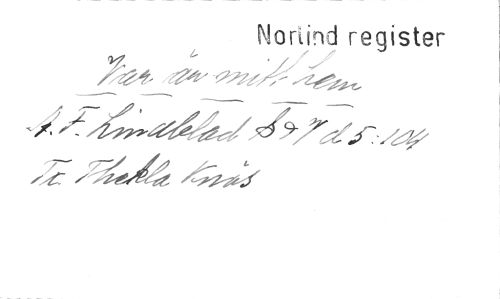 Norlind register
Var är mitt hem
A. F. Lindblad S & V d 5:104
Tr. Thekla Knös